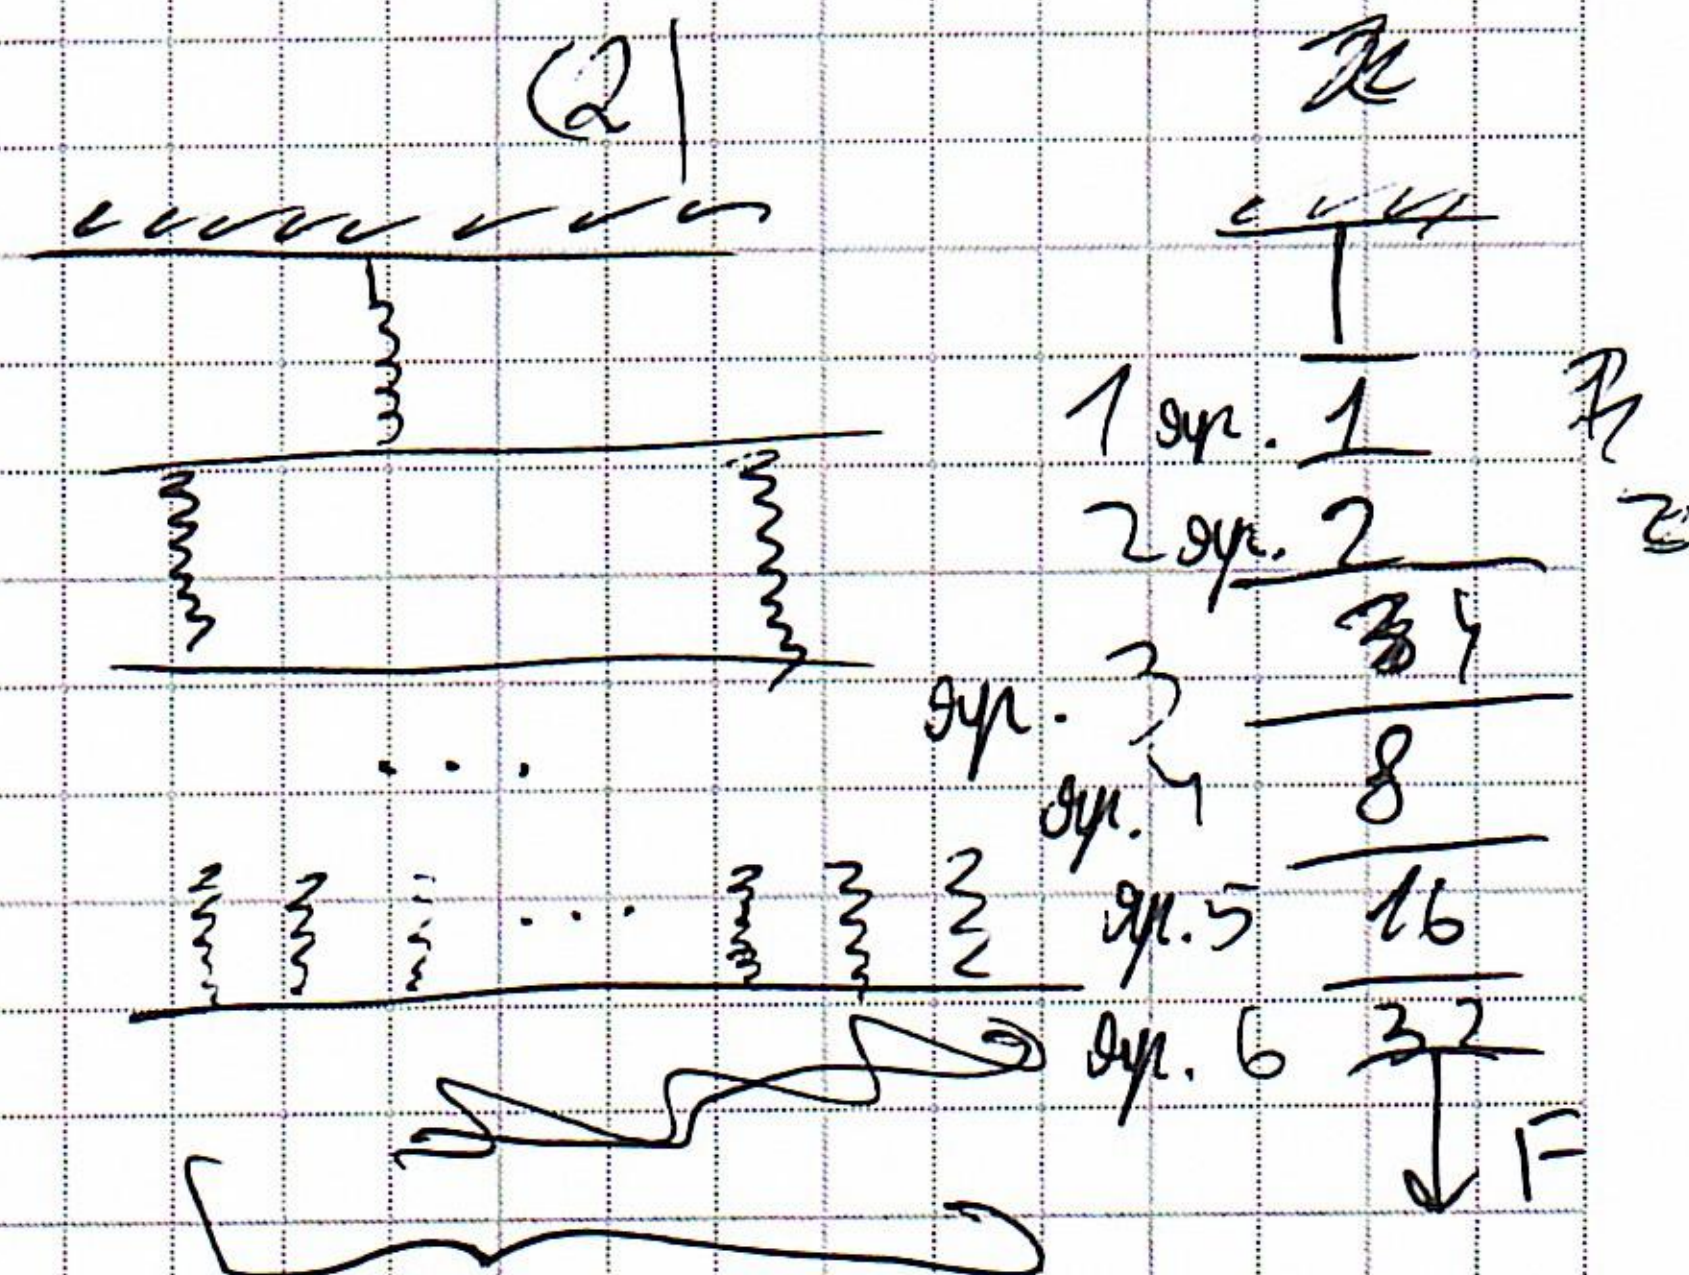 Q2
1 яр. 1
2 яр. 2
яр. 3 4
яр. 4 8
яр. 5 16
яр. 6 32
F